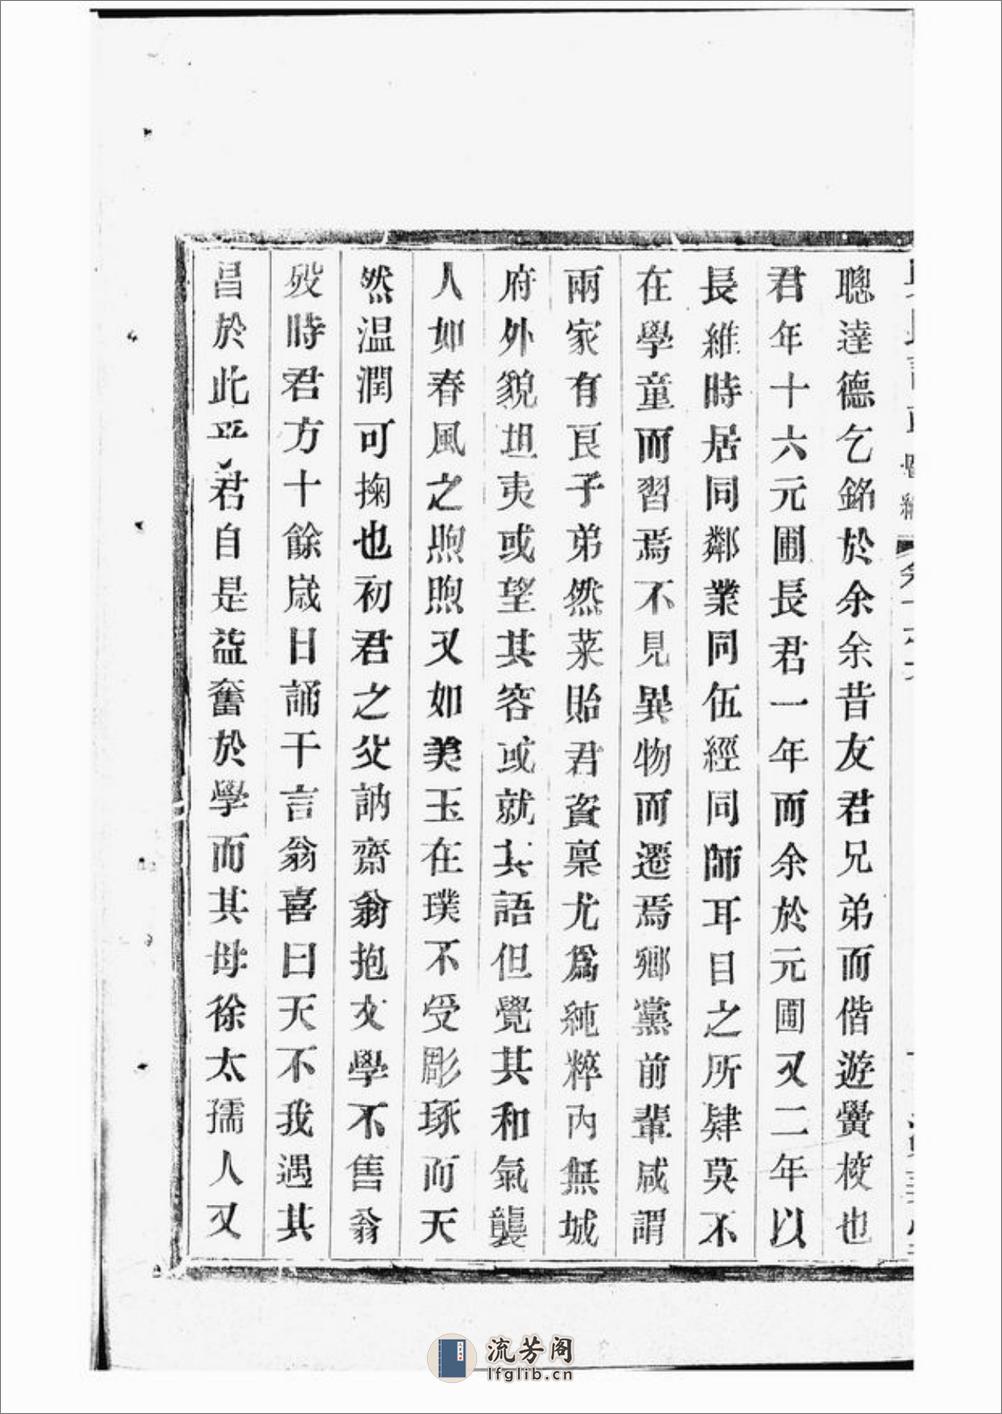 聰達德乞銘於余余昔友君兄弟而偕遊黌校也
君年十六元圃長君一年而余於元圃又二年以
長維時居同鄰業同伍經同師耳目之所肄莫不
在學童而習焉不見異物而遷焉鄉黨前輩咸謂
兩家有良子弟然菜貽君資稟尤爲純粹內無城
府外貌坦夷或望其容或就其語但覺其和氣襲
人如春風之煦煦又如美玉在璞不受彫琢而天
然温潤可掬也初君之父訥齋翁抱文學不售翁
歿時君方十餘歲日誦千言翁喜曰天不我遇其
昌於此乎君自是益奮於學而其母徐太孺人又
流芳阁
lfglib.cn